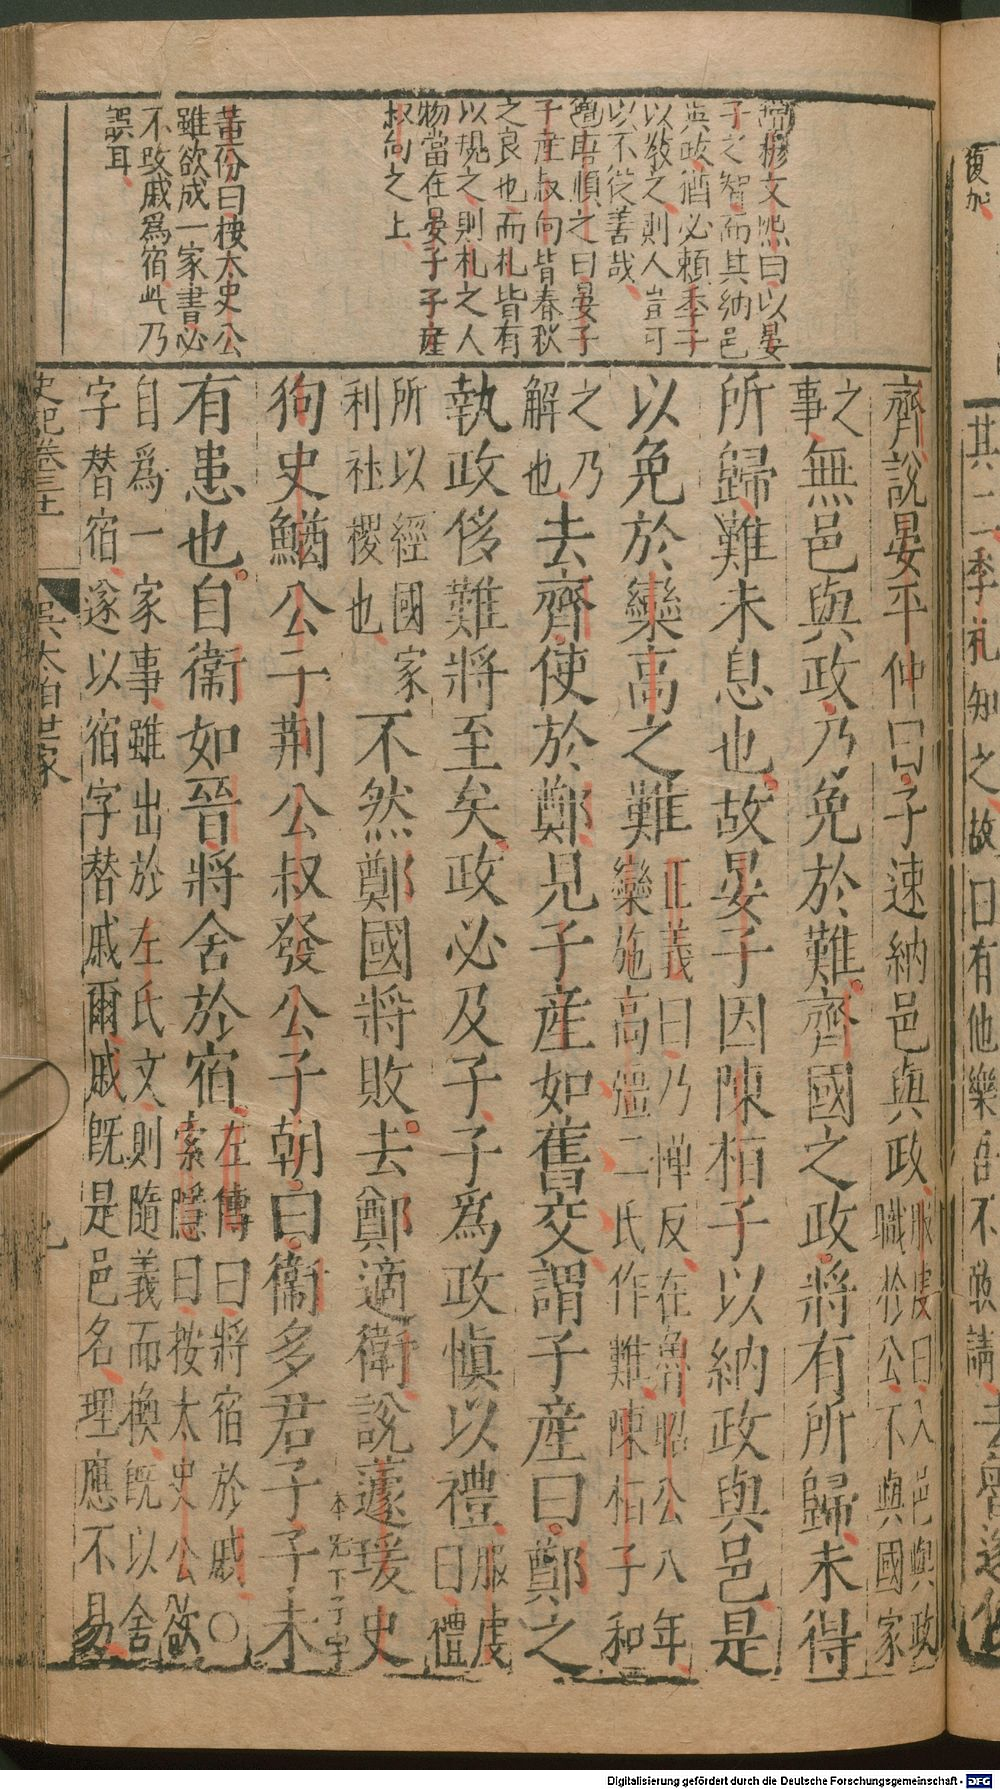 穆文熙曰以晏
子之智而其納邑
與政猶必頼季子
以教之則人豈可
以不從善哉
唐順之曰晏子
子産叔向皆春秋
之良也而札皆有
以規之則札之人
物當在晏子子産
叔向之上
董份曰按太史公
雖欲成一家書必
不改戚爲宿此乃
誤耳
齊說晏平仲曰子速納邑與政服虔曰入邑與政職於公不與國家
之事無邑與政乃免於難齊國之政將有所歸未得
所歸難未息也故晏子因陳桓子以納政與邑是
以免於欒高之難正義曰乃憚反在魯昭公八年欒施高彊二氏作難陳桓子和
之乃解也去齊使於鄭見子産如舊交謂子産曰鄭之
執政侈難將至矣政必及子子爲政慎以禮服虔曰禮
所以經國家利社稷也不然鄭國將敗去鄭適衛說蘧瑗史
狗史鰌公子荆公叔發公子朝曰衞多君子子未
本无下子字
有患也自衞如晉將舍於宿左傳曰將宿於戚〇索隱曰按太史公欲
自爲一家事雖出於左氏文則隨義而換旣以舍
字替宿遂以宿字替戚爾戚旣是邑名理應不易
史記卷三十一
吳太伯世家
九
復加
其二季札知之故曰有他樂吾不敢請去魯遂使
Digitalisierung gefördert durch die Deutsche Forschungsgemeinschaft - DFG